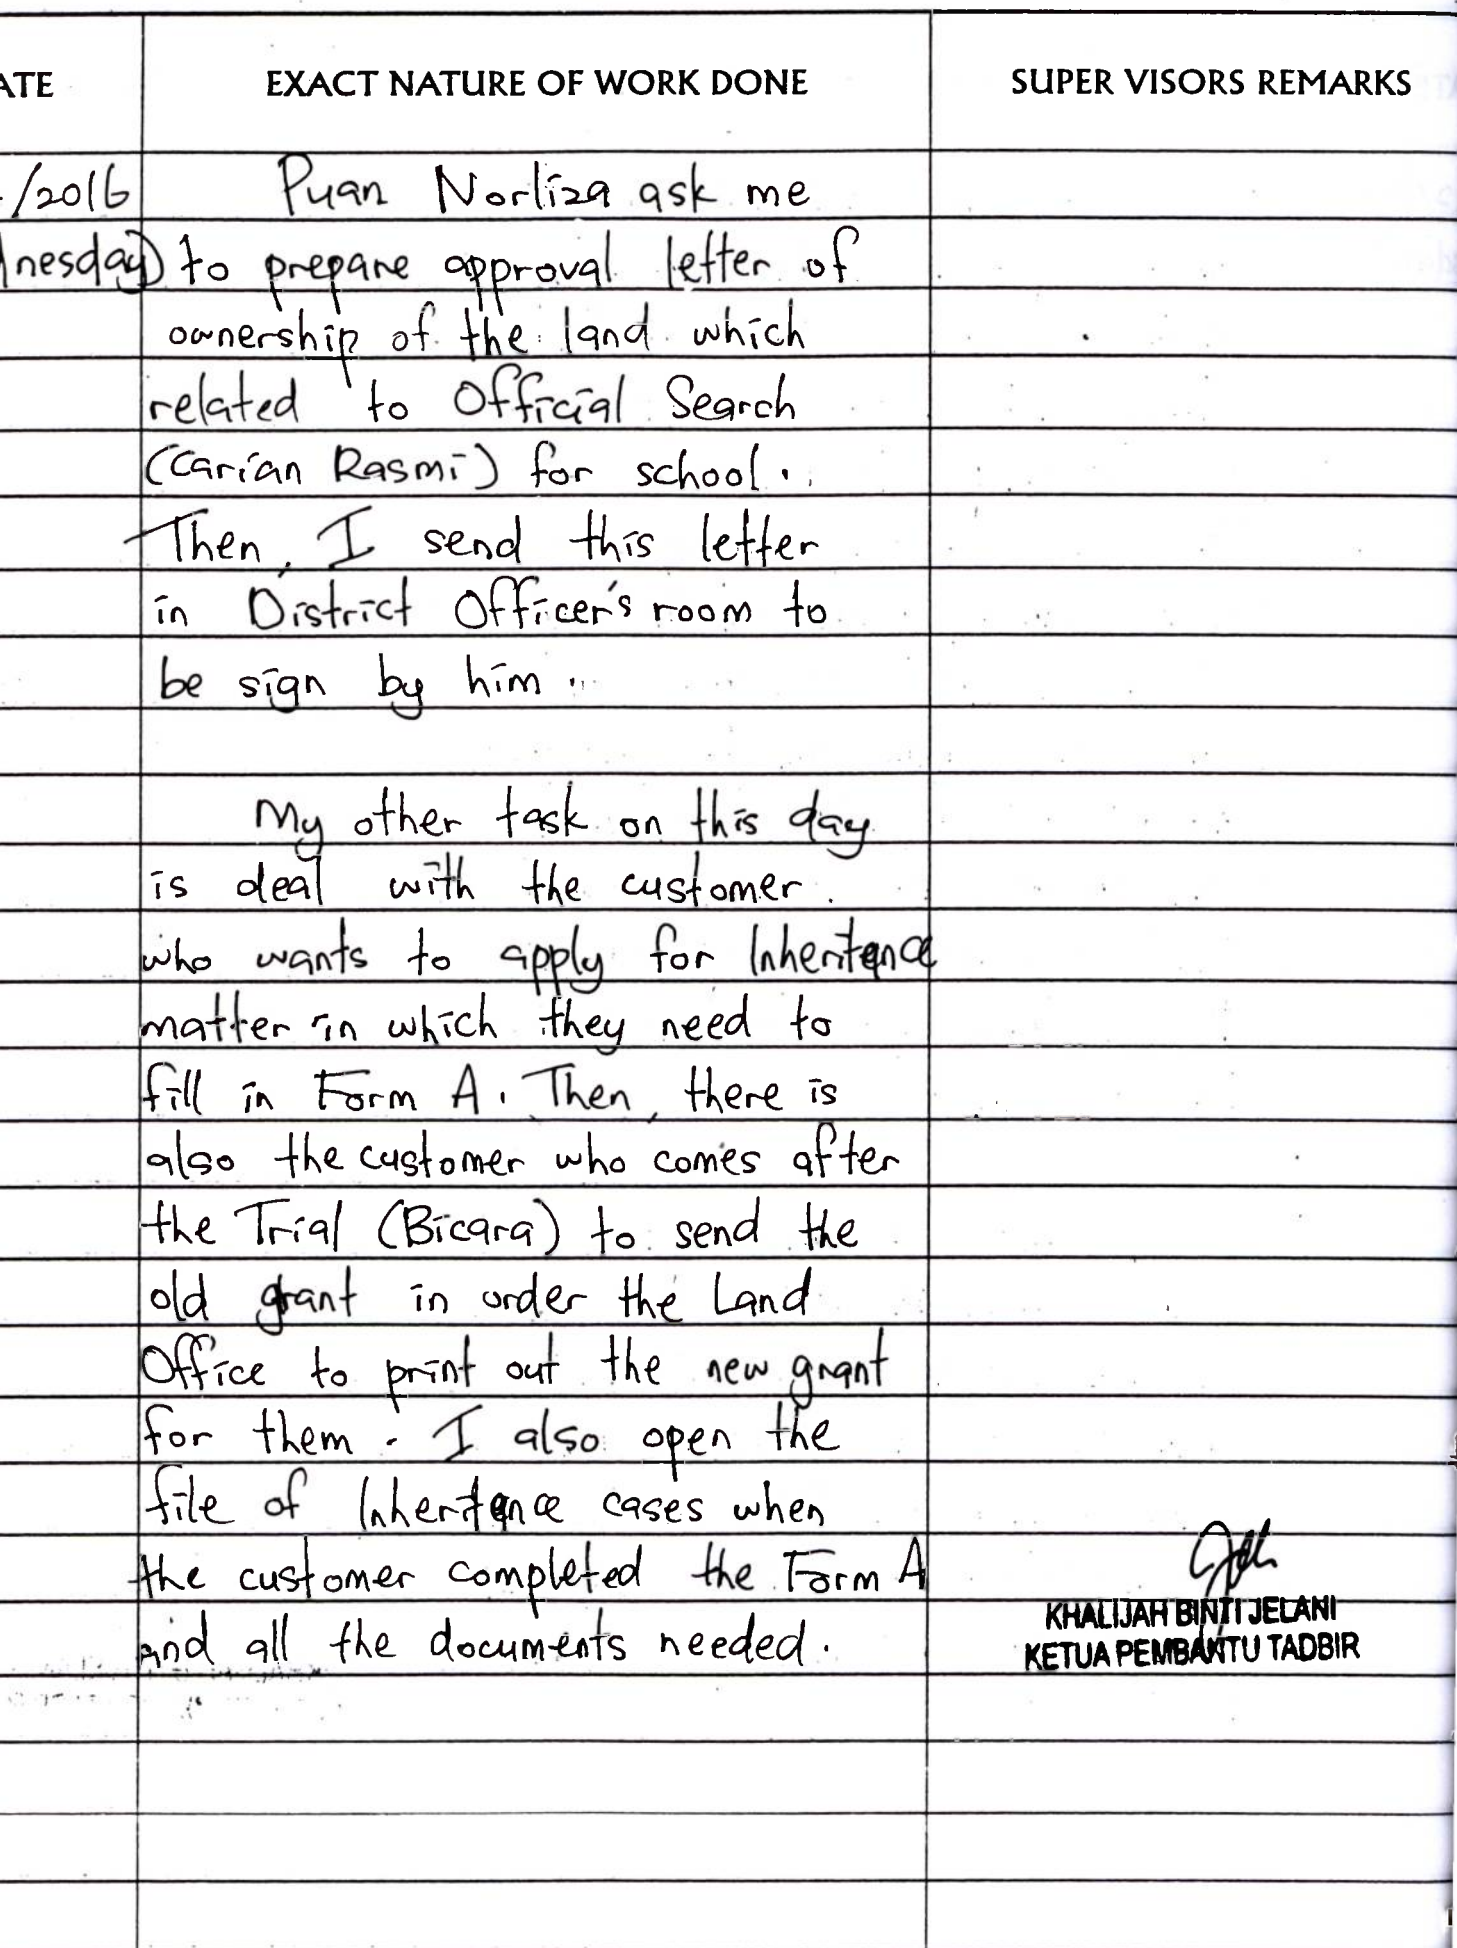 ATE EXACT NATURE OF WORK DONE SUPER VISORS REMARKS
/2016 Puan Norliza ask me
nesday) to prepare approval letter of
ownership of the land which
related to Official Search
(Carian Rasmi) for school.
Then, I send this letter
in District Officer's room to
be sign by him.
My other task on this day
is deal with the customer
who wants to apply for Inheritance
matter in which they need to
fill in Form A. Then, there is
also the customer who comes after
the Trial (Bicara) to send the
old grant in order the Land
Office to print out the new grant
for them. I also open the
file of Inheritance cases when
the customer completed the Form A
and all the documents needed.
KHALIJAH BINTI JELANI
KETUA PEMBANTU TADBIR